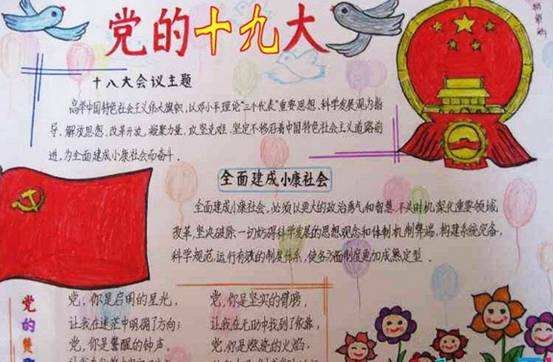 党的十九大
十八大会议主题
高举中国特色社会主义伟大旗帜，以邓小平理论"三个代表"重要思想、科学发展观为指
导，解放思想，改革开放，凝聚力量，攻坚克难，坚定不移沿着中国特色社会主义道路前
进，为全面建成小康社会而奋斗。
全面建成小康社会
全面建成小康社会，必须以更大的政治勇气和智慧，不失时机深化重要领域
改革，坚决破除一切妨碍科学发展的思想观念和体制机制弊端，构建系统完备、
科学规范、运行有效的制度体系，使各方面制度更加成熟定型。
党的
党，你是启明的星光，
让我在迷茫中明确了方向；
党，你是警醒的钟声，
党，你是坚实的臂膀，
让我在无助中找到了依靠，
党，你是燃烧的火焰，